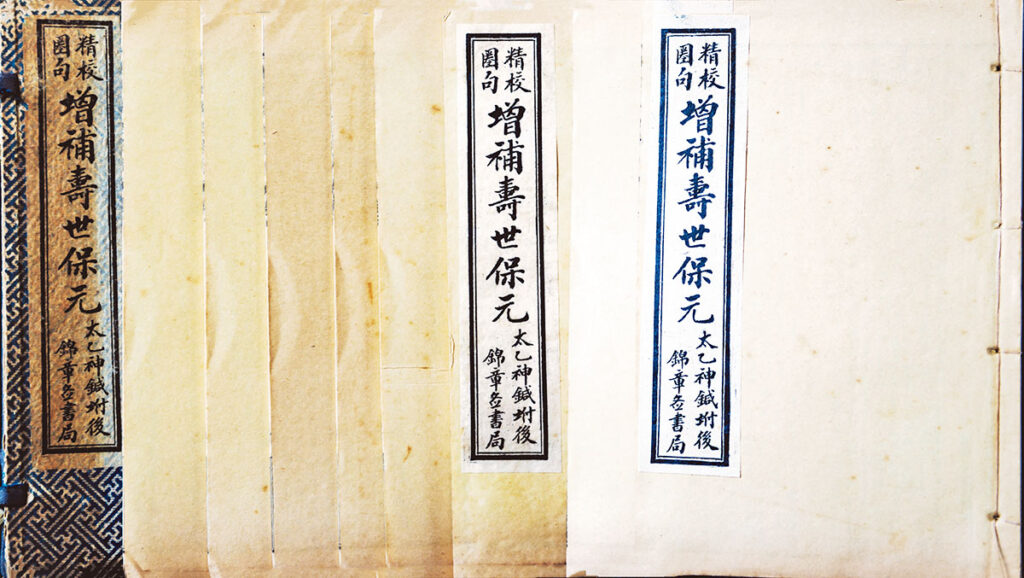 精校
圈句
增補壽世保元
太乙神鍼坿後
錦章啚書局
精校
圈句
增補壽世保元
太乙神鍼坿後
錦章啚書局
精校
圈句
增補壽世保元
太乙神鍼坿後
錦章啚書局